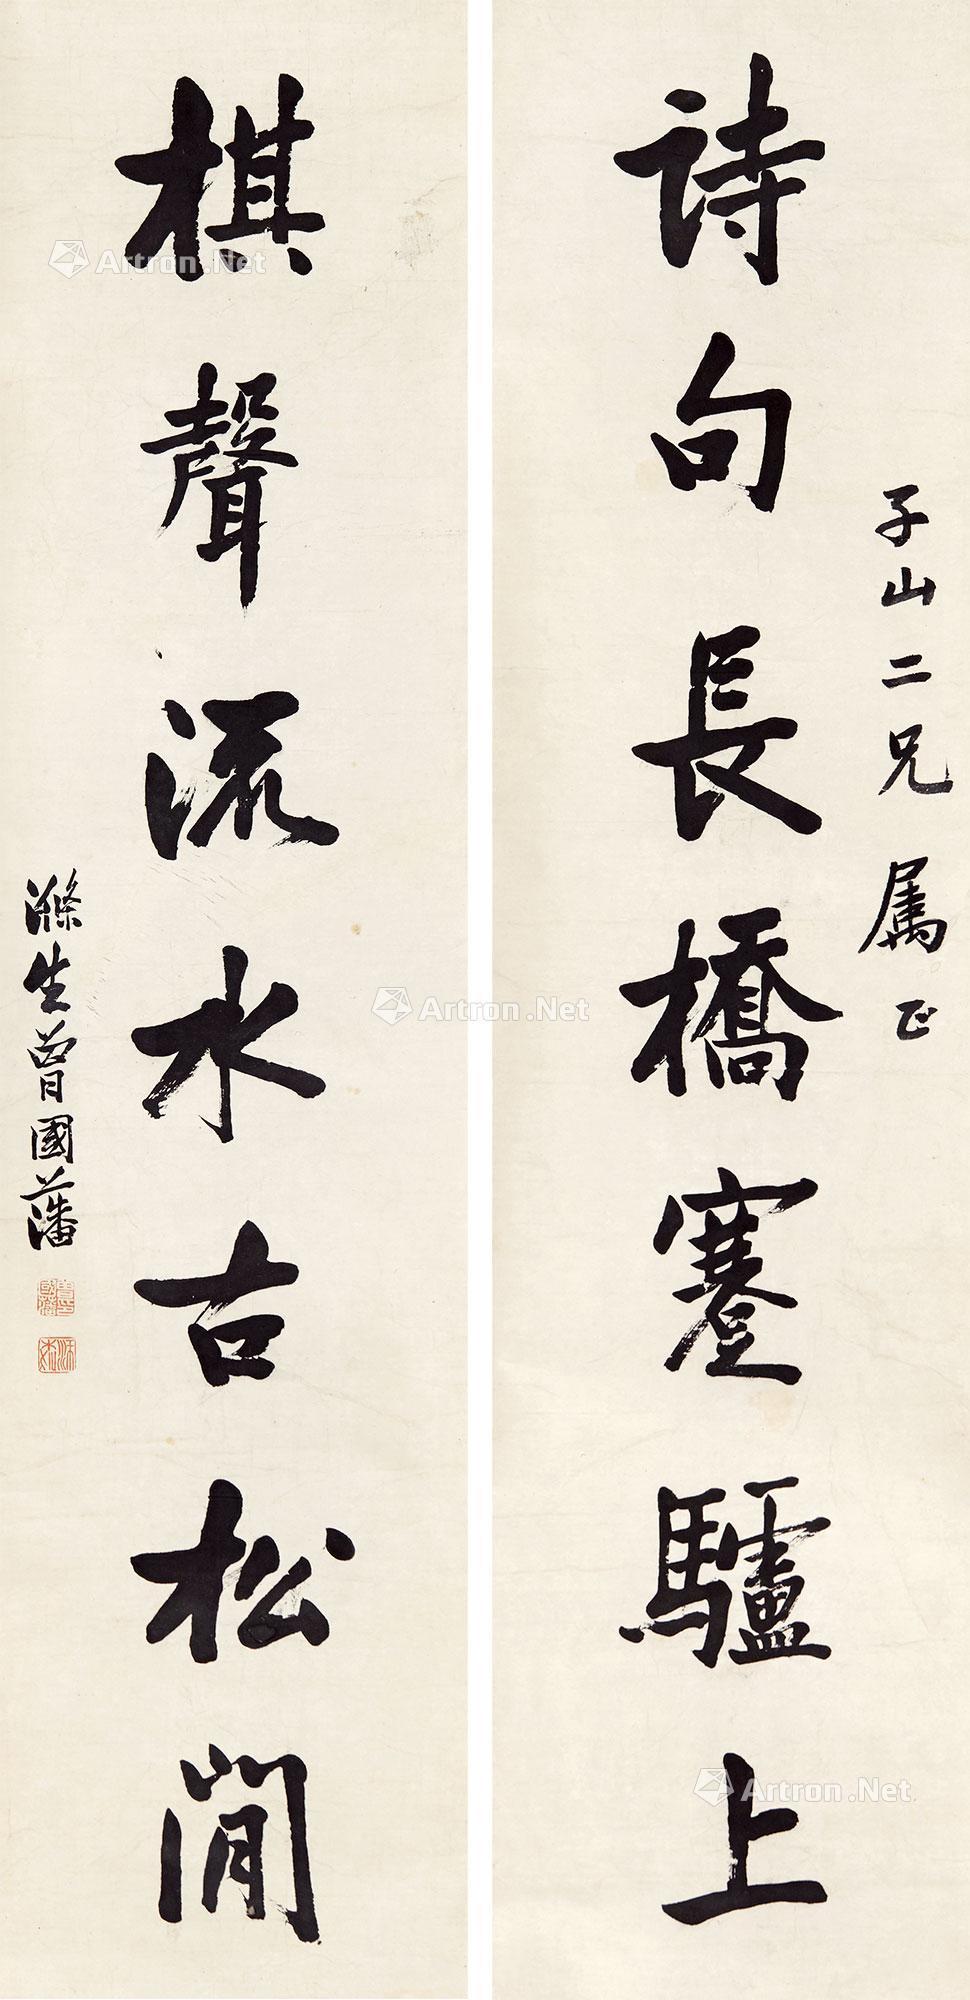 詩句長橋蹇驢上
子山二兄屬正
棋聲流水古松間
滌生曾國藩
Artron.Net
Artron.Net
Artron.Net